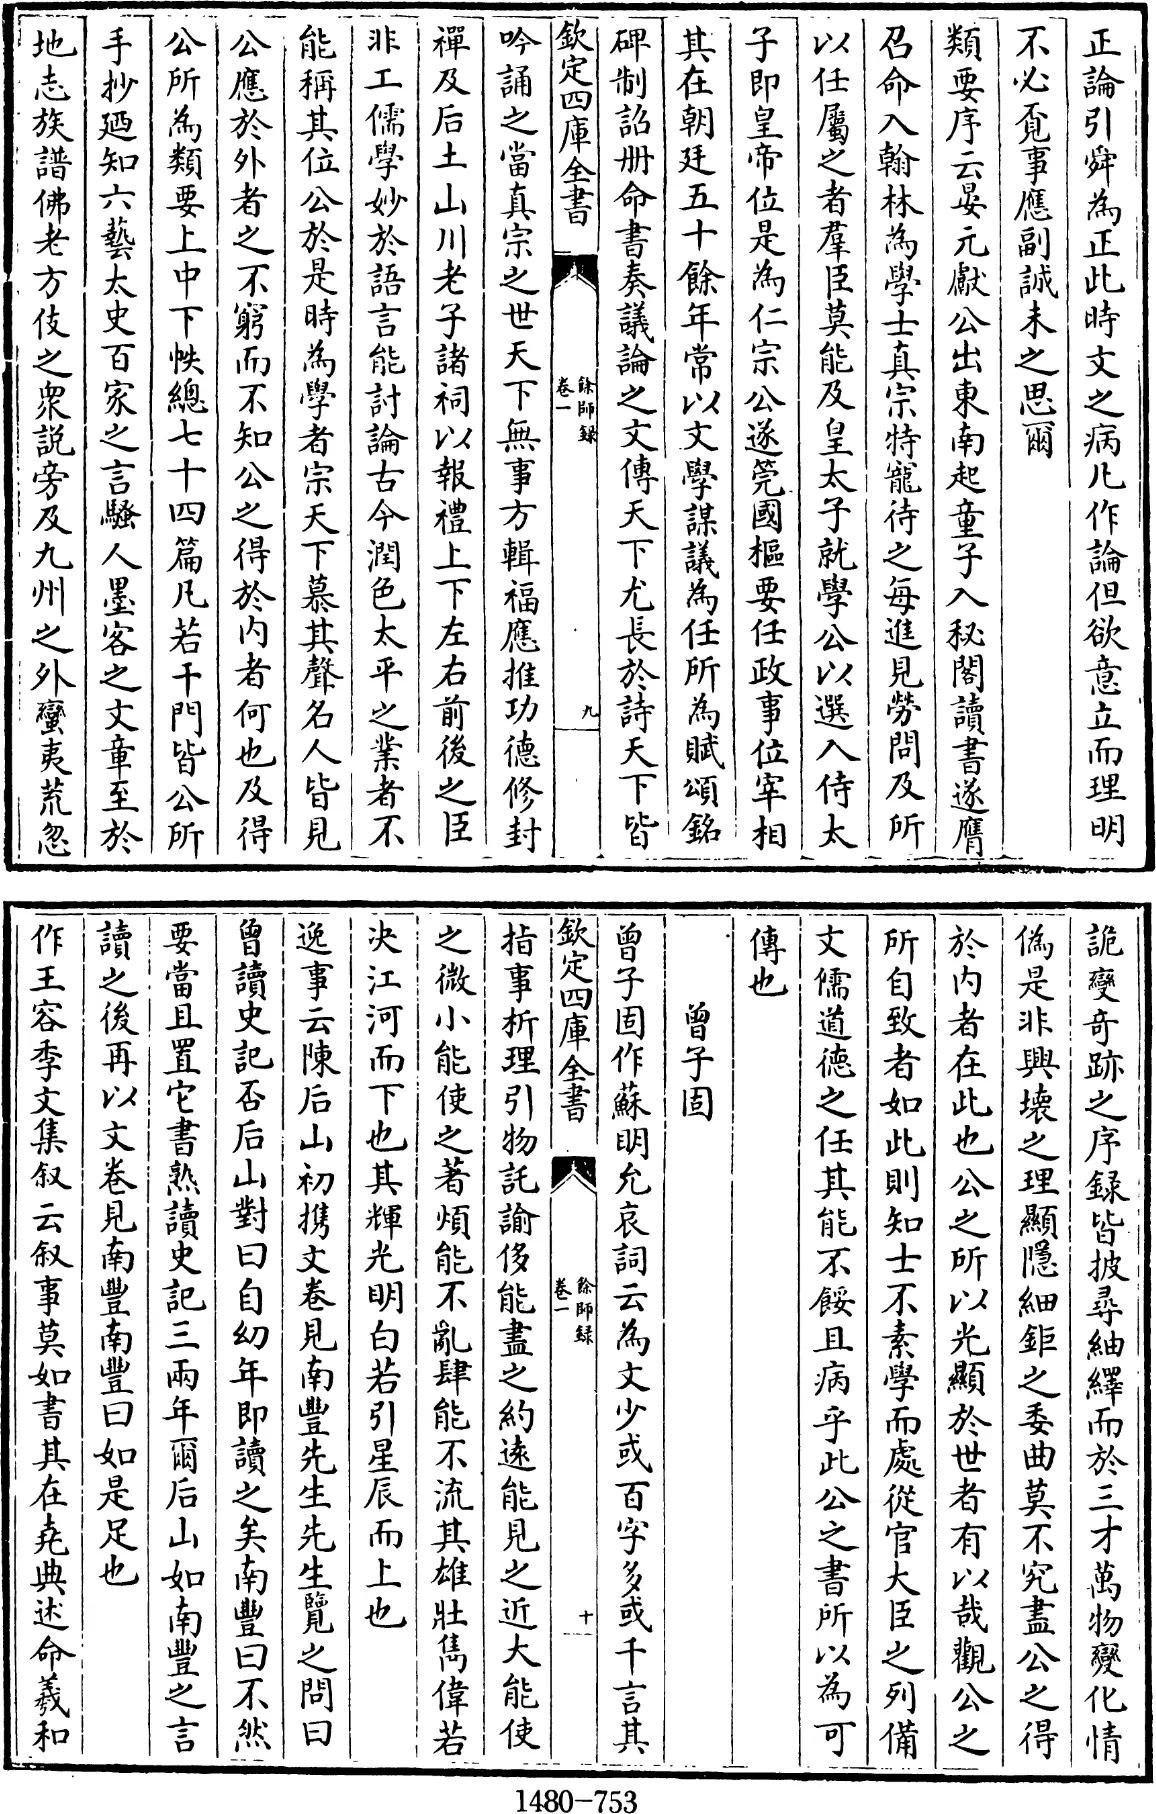 正論引舜為正此時文之病凡作論但欲意立而理明
不必覔事應副誠未之思爾
類要序云晏元獻公出東南起童子入秘閣讀書遂膺
召命入翰林為學士真宗特寵待之每進見勞問及所
以任屬之者羣臣莫能及皇太子就學公以選入侍太
子即皇帝位是為仁宗公遂筦國樞要任政事位宰相
其在朝廷五十餘年常以文學謀議為任所為賦頌銘
碑制詔册命書奏議論之文傳天下尤長於詩天下皆
欽定四庫全書
餘師録
卷一
九
吟誦之當真宗之世天下無事方輯福應推功德修封
禪及后土山川老子諸祠以報禮上下左右前後之臣
非工儒學妙於語言能討論古今潤色太平之業者不
能稱其位公於是時為學者宗天下慕其聲名人皆見
公應於外者之不窮而不知公之得於内者何也及得
公所為類要上中下帙總七十四篇凡若干門皆公所
手抄廼知六藝太史百家之言騷人墨客之文章至於
地志族譜佛老方伎之衆説旁及九州之外蠻夷荒忽
詭變奇跡之序録皆披尋紬繹而於三才萬物變化情
偽是非興壞之理顯隱細鉅之委曲莫不究盡公之得
於内者在此也公之所以光顯於世者有以哉觀公之
所自致者如此則知士不素學而處從官大臣之列備
文儒道德之任其能不餒且病乎此公之書所以為可
傳也
曾子固
曾子固作蘇明允哀詞云為文少或百字多或千言其
欽定四庫全書
餘師録
卷一
十
指事析理引物託諭侈能盡之約逺能見之近大能使
之微小能使之著煩能不亂肆能不流其雄壯雋偉若
决江河而下也其輝光明白若引星辰而上也
逸事云陳后山初攜文卷見南豐先生先生覽之問曰
曾讀史記否后山對曰自幼年即讀之矣南豐曰不然
要當且置它書熟讀史記三兩年爾后山如南豐之言
讀之後再以文卷見南豐南豐曰如是足也
作王容季文集叙云叙事莫如書其在堯典述命羲和
1480-753